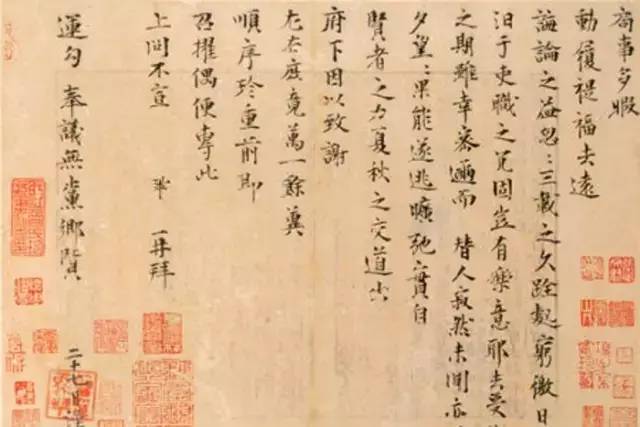 局事多暇
動履禔福去遠
誨論之益忽〻三載之久跧處窮徼日
汩于吏職之冗固豈有樂意耶去受
之期雖幸密邇而替人寂然未聞亦
夕望〻果能遂逃曠弛實自
賢者之力夏秋之交道出
府下因以致謝
左右庶竟萬一餘冀
順序珍重前即
召擢偶便專此
上問不宣 鞏 再拜
運勾奉議無黨鄉賢
二十七日謹